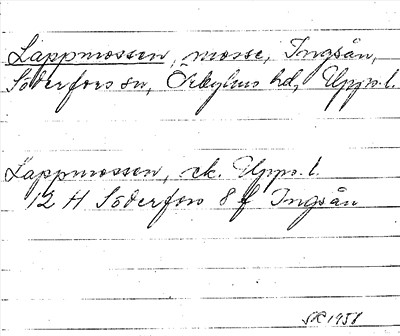 Lappmossen, mosse, Ingsån,
Söderfors sn, Örbyhus hd, Upps. l.
Lappmossen, ek. Upps. l.
12 H Söderfors 8 f Ingsån
1958